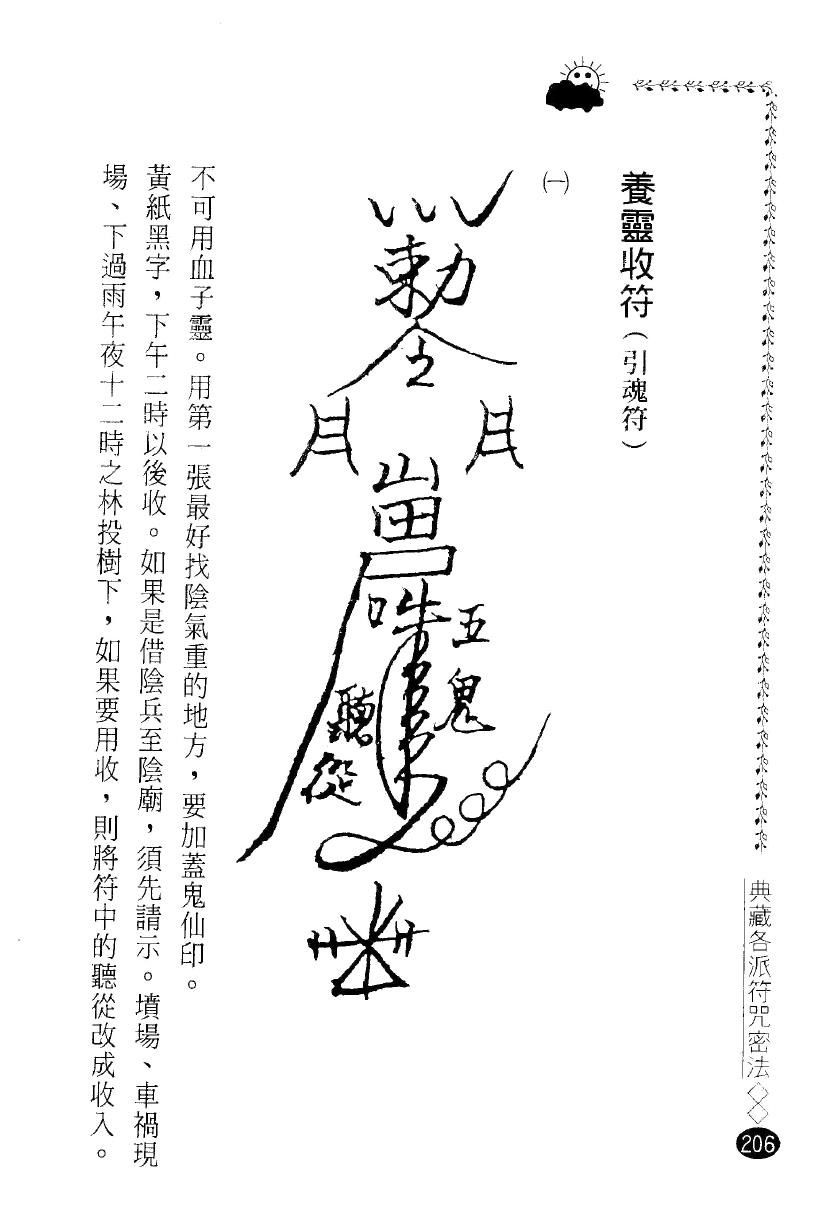 養靈收符(引魂符)
㈠
勅令
月 月
五鬼
聽從
不可用血子靈。用第一張最好找陰氣重的地方,要加蓋鬼仙印。
黃紙黑字,下午二時以後收。如果是借陰兵至陰廟,須先請示。墳場、車禍現
場、下過雨午夜十二時之林投樹下,如果要用收,則將符中的聽從改成收入。
典藏各派符咒密法
206